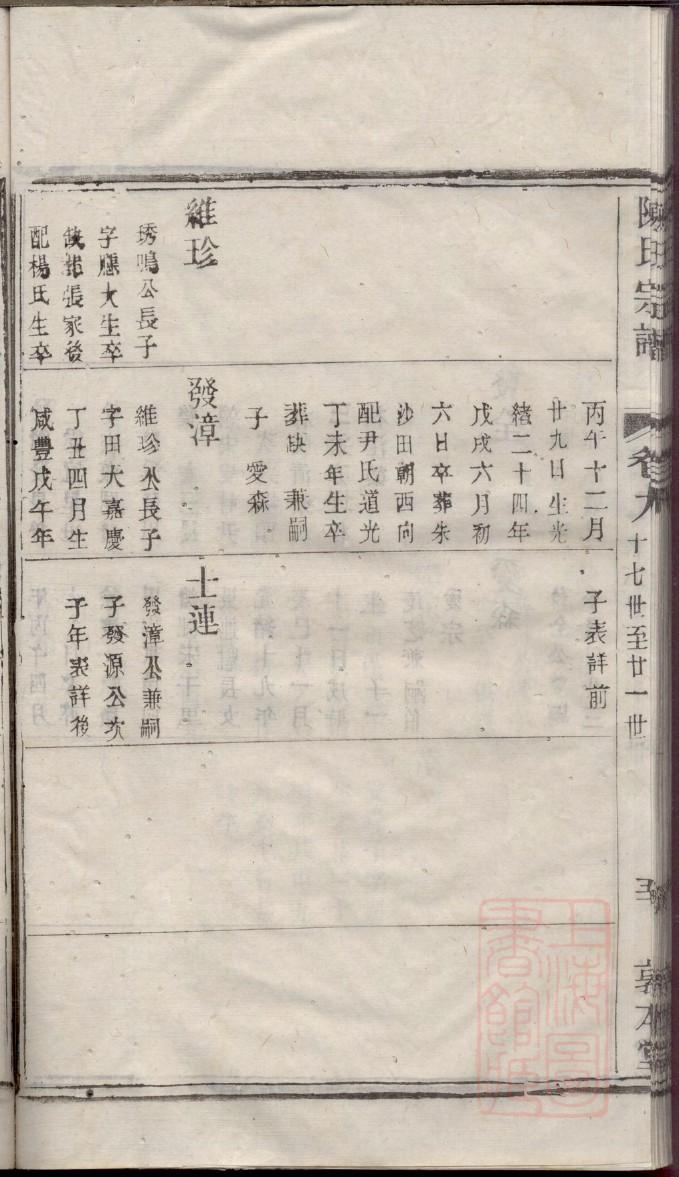 陳氏宗譜
卷九
十七世至廿一世
敦本堂
維珍
琇鳴公長子
字騰大生卒
缺葬張家後
配楊氏生卒
丙午十二月
廿九日生光
緒二十四年
戊戌六月初
六日卒葬朱
沙田朝西向
配尹氏道光
丁未年生卒
葬缺兼嗣
子愛森
發漳
維珍公長子
字田大嘉慶
丁丑四月生
咸豐戊午年
子表詳前
士連
發漳公兼嗣
子發源公次
子年表詳後
上海圖書館藏